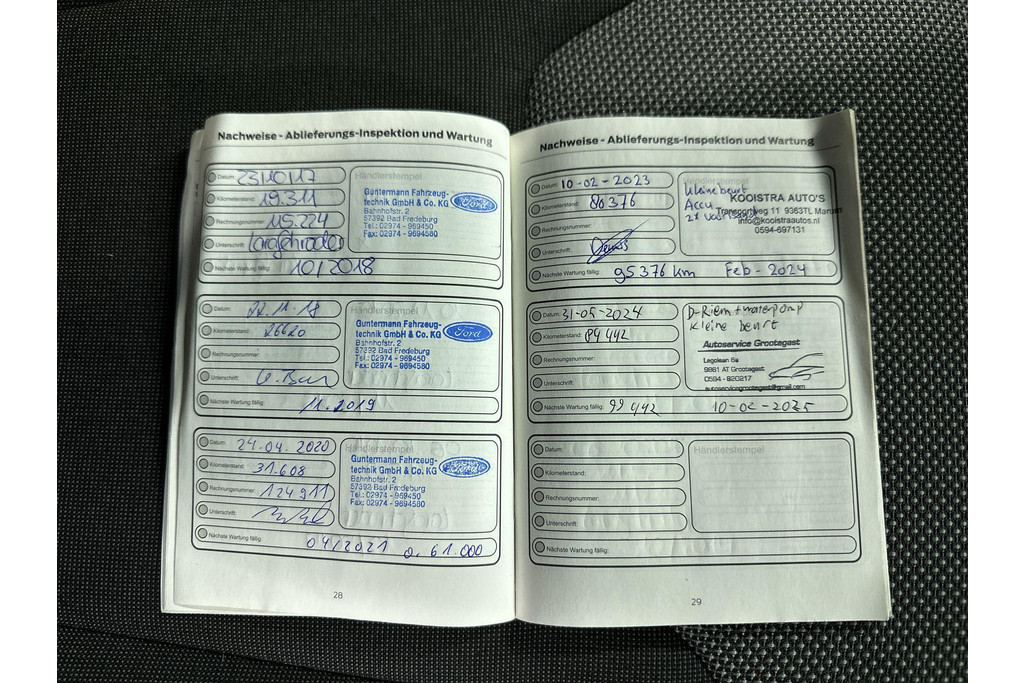 Nachweise - Ablieferungs-Inspektion und Wartung
Datum: 23/10/17
Kilometerstand: 19.311
Rechnungsnummer: 115.224
Unterschrift:
Nächste Wartung fällig: 10/2018
Händlerstempel
Guntermann Fahrzeug-
technik GmbH & Co. KG
Bahnhofstr. 2
57392 Bad Fredeburg
Tel.: 02974 - 969450
Fax: 02974 - 9694580
Ford
Datum: 22.11.18
Kilometerstand: 26620
Rechnungsnummer:
Unterschrift:
Nächste Wartung fällig: 11.2019
Händlerstempel
Guntermann Fahrzeug-
technik GmbH & Co. KG
Bahnhofstr. 2
57392 Bad Fredeburg
Tel.: 02974 - 969450
Fax: 02974 - 9694580
Ford
Datum: 24.04.2020
Kilometerstand: 31.608
Rechnungsnummer: 124911
Unterschrift:
Nächste Wartung fällig: 04/2021 o. 61.000
Händlerstempel
Guntermann Fahrzeug-
technik GmbH & Co. KG
Bahnhofstr. 2
57392 Bad Fredeburg
Tel.: 02974 - 969450
Fax: 02974 - 9694580
Ford
28
Nachweise - Ablieferungs-Inspektion und Wartung
Datum: 10-02-2023
Kilometerstand: 80376
Rechnungsnummer:
Unterschrift:
Nächste Wartung fällig: 95376 km Feb-2024
Händlerstempel
Kleine beurt
Accu
2x
KOOISTRA AUTO'S
Transportweg 11 9363TL Marum
info@kooistraautos.nl
0594-697131
Datum: 31-05-2024
Kilometerstand: 84442
Rechnungsnummer:
Unterschrift:
Nächste Wartung fällig: 99442 10-02-2025
D-Riem + waterpomp
Kleine beurt
Autoservice Grootegast
Legolaan 6a
9861 AT Grootegast
0594 - 820217
autoservicegrootegast@gmail.com
Datum:
Kilometerstand:
Rechnungsnummer:
Unterschrift:
Nächste Wartung fällig:
Händlerstempel
29